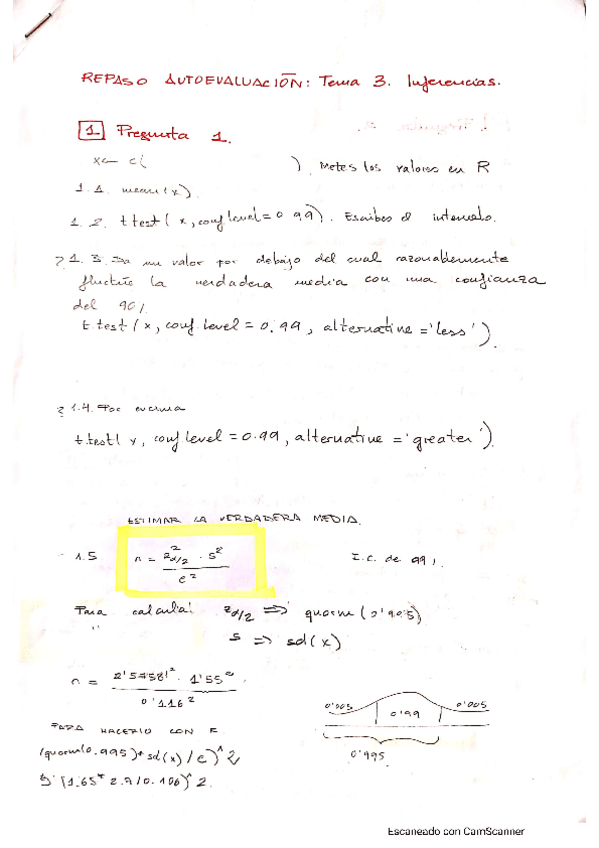 REPASO AUTOEVALUACIÓN: Tema 3. Inferencias.
1. Pregunta 1.
x← c( ). Metes los valores en R
1.1. mean(x).
1.2. t test( x, conf level = 0 99). Escribes el intervalo.
?1.3. Da un valor por debajo del cual razonablemente
fluctúe la verdadera media con una confianza
del 90%
t.test(x, conf.level = 0.99, alternative = 'less').
? 1.4. Por encima
t.test( x, conf level = 0.99, alternative = 'greater').
ESTIMAR LA VERDADERA MEDIA.
1.5 n = z²α/2 · s² / e² I.C. de 99%
Para calcular zα/2 => qnorm(0'995)
" s => sd(x)
n = 2'5758² · 1'55² / 0'116²
0'005 0'99 0'005
0'995
PARA HACERLO CON R
(qnorm(0.995)* sd(x)/e)^2
(1.65* 2.7/0.106)^2.
Escaneado con CamScanner